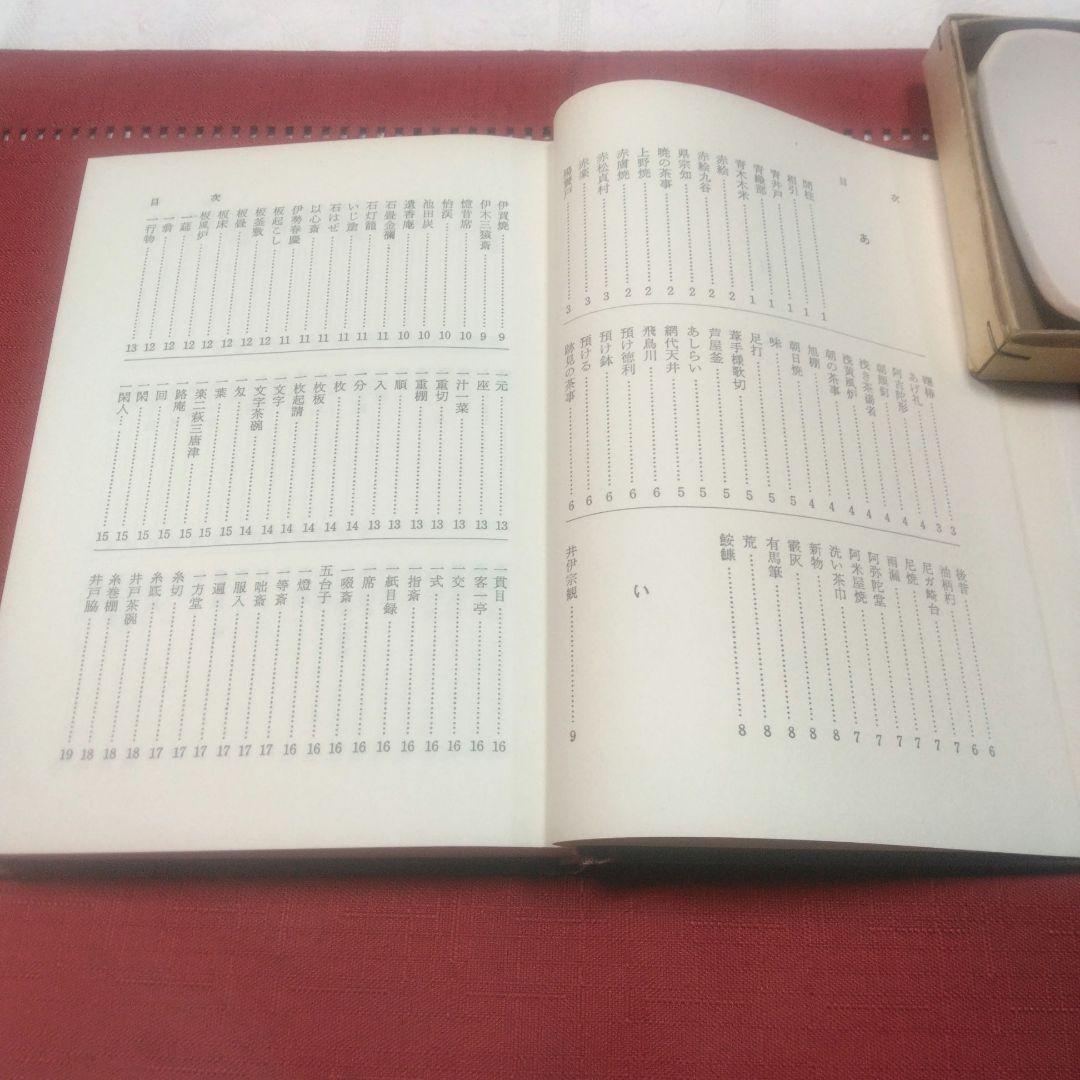 目次
あ
間柱 1
相引 1
青井戸 1
青織部 1
青木木米 2
赤絵 2
赤絵九谷 2
県宗知 2
暁の茶事 2
上野焼 2
赤膚焼 2
赤松貞村 3
赤楽 3
3
椿 3
あげ札 3
阿古陀形 4
4
浅き茶 4
浅黄風炉 4
朝の茶事 4
旭棚 4
朝日焼 5
味 5
足打 5
葦手様歌切 5
芦屋釜 5
あしらい 5
網代天井 5
飛鳥川 6
預け徳利 6
預け鉢 6
預ける 6
跡見の茶事 6
後昔 6
油柄杓 6
尼ガ崎台 7
尼焼 7
雨漏 7
阿弥陀堂 7
阿米屋焼 7
洗い茶巾 8
新物 8
霰灰 8
有馬筆 8
荒 8
鮟鱇 8
い
井伊宗観 9
目次
伊賀焼 9
伊木三猿斎 9
憶昔席 10
怡渓 10
池田炭 10
遺香庵 10
石畳金襴 11
石灯籠 11
いじ塗 11
石はぜ 11
以心斎 11
伊勢春慶 11
板起こし 11
板釜敷 12
板畳 12
板床 12
板風炉 12
一蘊 12
一翁 12
一行物 13
一元 13
一座 13
一汁一菜 13
一重切 13
一重棚 13
一順 13
一入 13
一分 14
一枚 14
一枚板 14
一枚起請 14
一文字 14
一文字茶碗 14
一匁 15
一葉 15
一楽二萩三唐津 15
一路庵 15
一回 15
一閑 15
一閑人 15
一貫目 16
一客一亭 16
一交 16
一式 16
一紙目録 16
一指斎 16
一席 16
一啜斎 16
五台子 16
一燈 16
一等斎 16
一咄斎 17
一服入 17
一遍 17
一方堂 17
糸切 17
糸底 17
井戸茶碗 18
糸巻棚 18
井戸脇 19